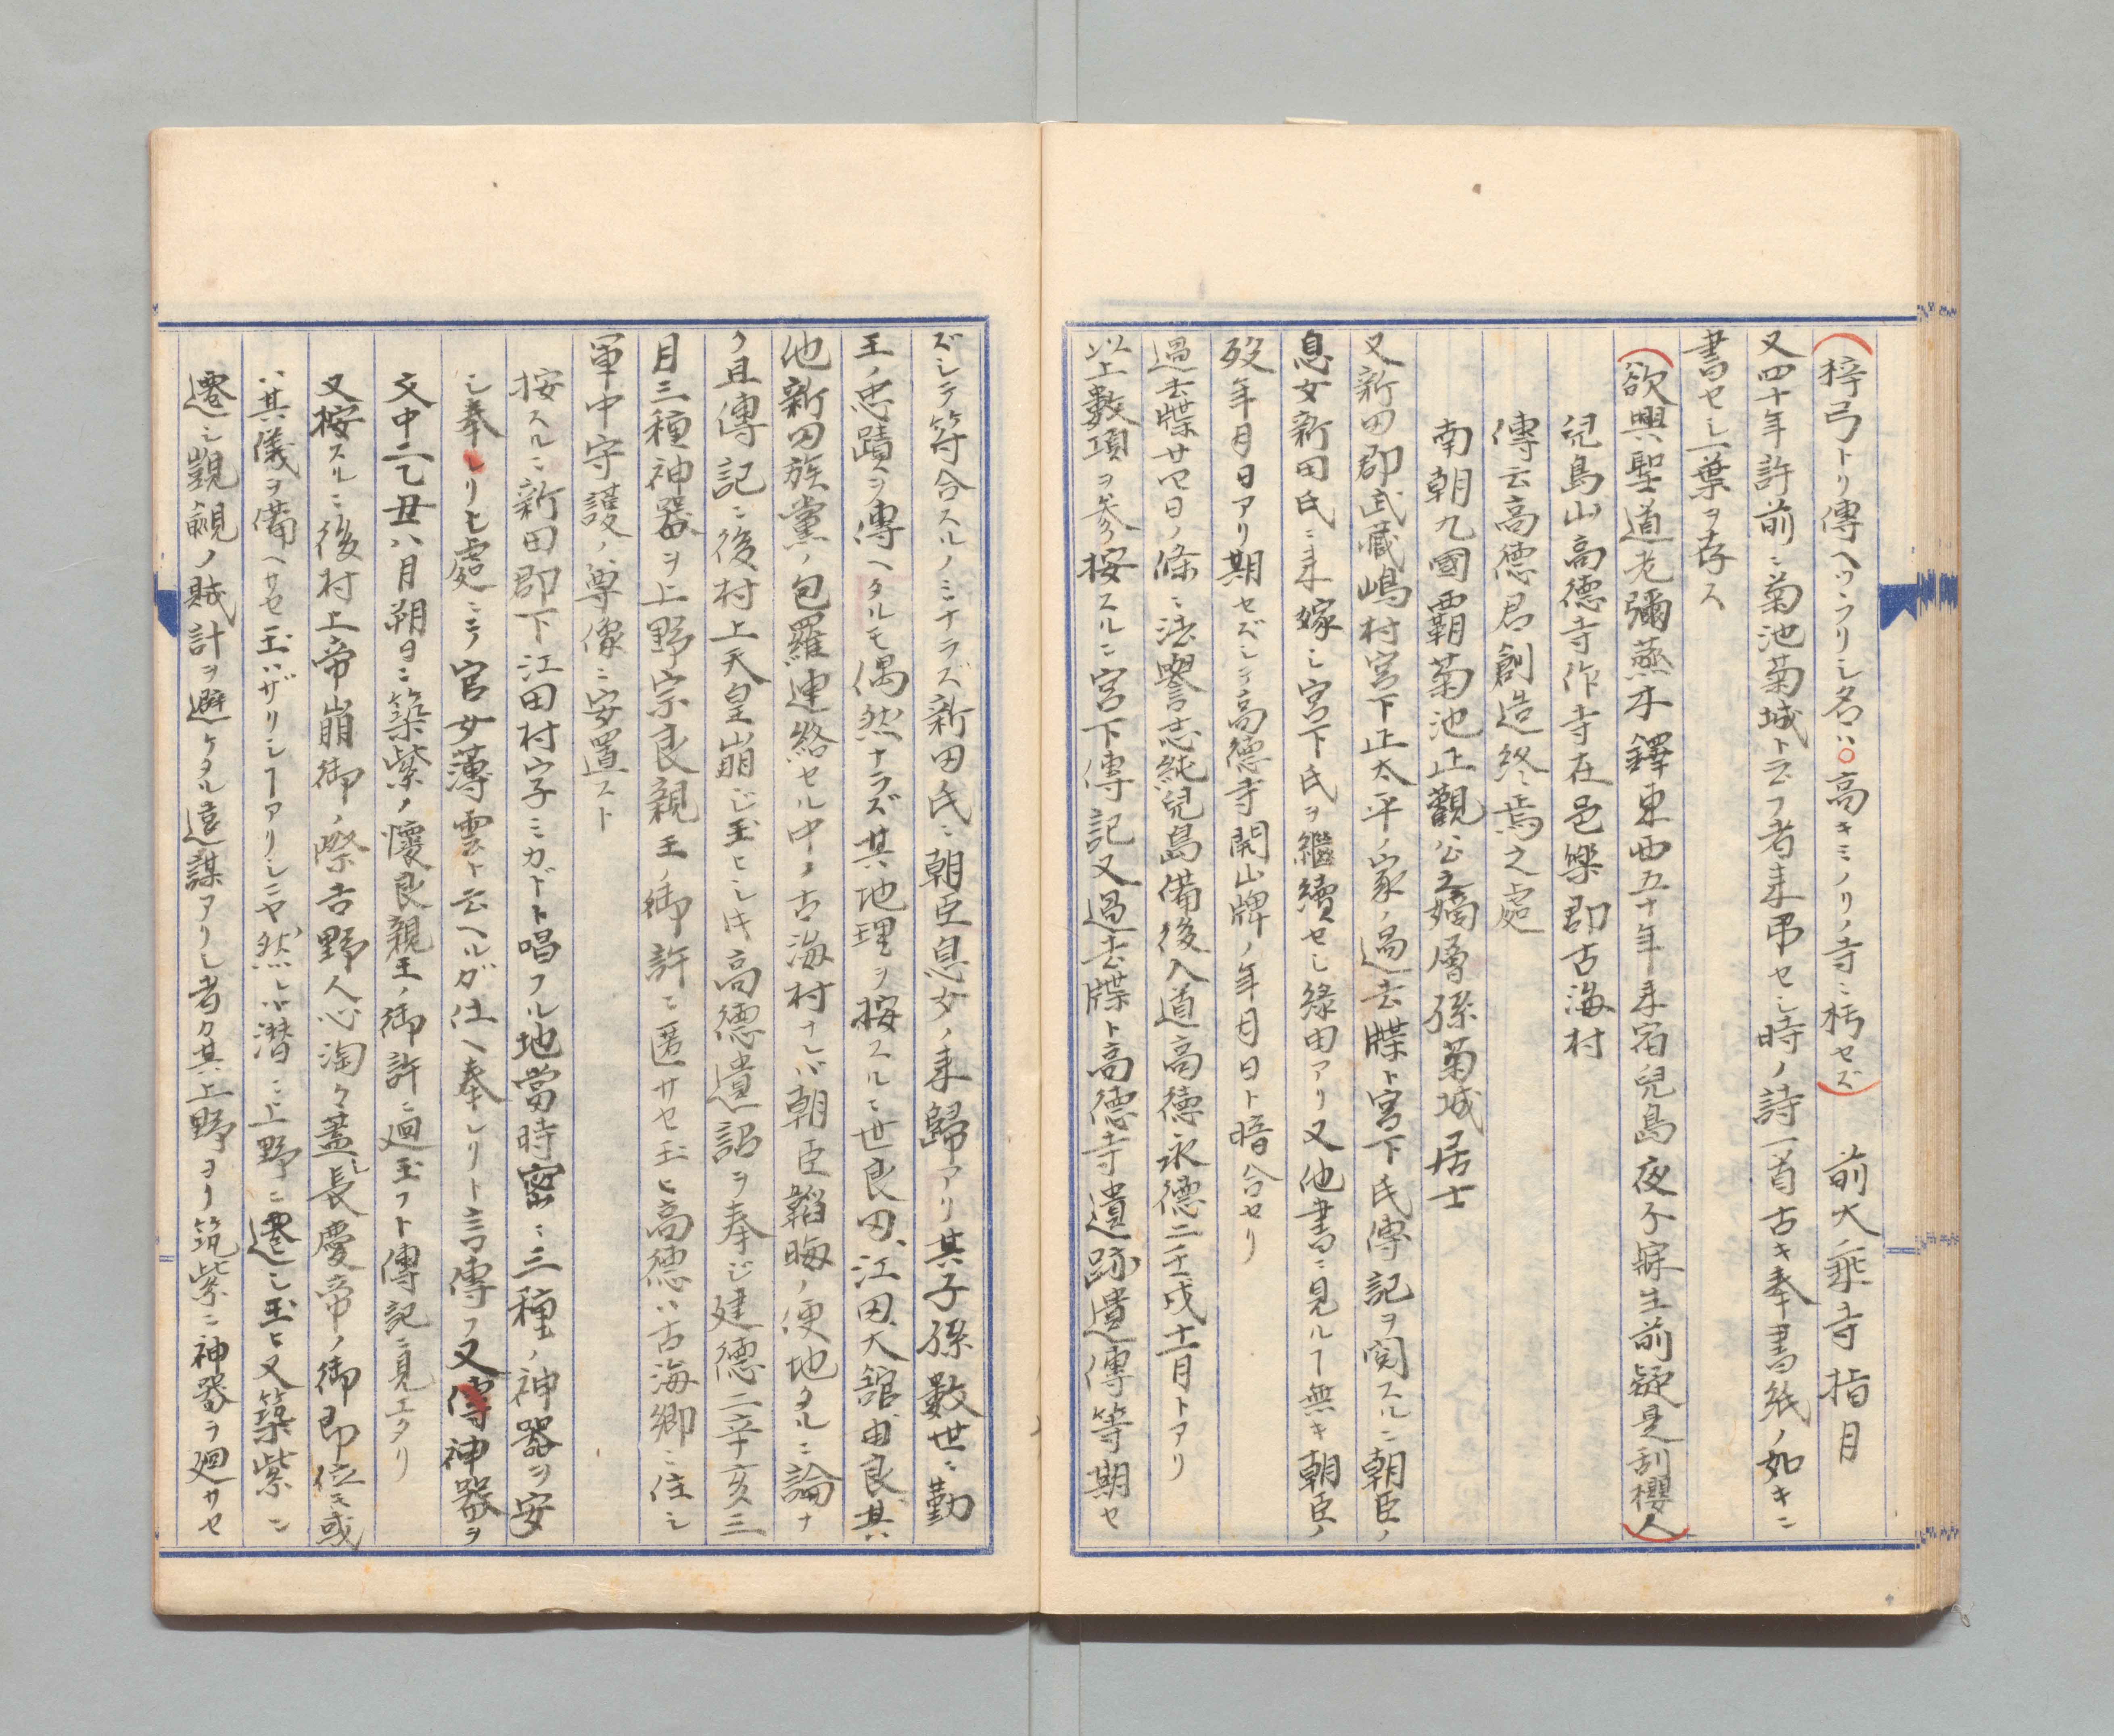 (梓弓トリ傳ヘツヽリシ名ハ○高キミノリノ寺ニ朽セズ)　前大乘寺指月
又四十年許前ニ菊池菊城ト云フ者来吊セシ時ノ詩一首古キ奉書紙ノ如キニ
書セシ一葉ヲ存ス
(欲興聖道老彌蒸木鐸東西五十年来宿兒島夜不寐生前疑是刮櫻人)
兒島山高德寺作寺在邑樂郡古海村
傳云高德君創造終焉之處
南朝九國覇菊池正觀公之嫡層孫菊城居士
又新田郡武藏嶋村宮下正太平ノ家ノ過去牒ト宮下氏傳記ヲ閲スルニ朝臣ノ
息女新田氏ニ来嫁シ宮下氏ヲ繼續セシ緣由アリ又他書ニ見ルヿ無キ朝臣ノ
歿年月日アリ期セズシテ高德寺開山牌ノ年月日ト暗合セリ
過去牒廿四日ノ條ニ法譽志純兒島備後入道高德永德二壬戌十一月トアリ
以上數項ヲ參按スルニ宮下傳記又過去牒ト高德寺遺跡遺傳等期セ
ズシテ符合スルノミナラズ新田氏ニ朝臣息女ノ来歸アリ其子孫數世ニ勤
王ノ忠蹟ヲ傳ヘタルモ偶然ナラズ其地理ヲ按スルニ世良田、江田、大舘、由良、其
他新田族黨ノ包羅連絡セル中ノ古海村ナレバ朝臣韜晦ノ便地タルニ論ナ
ク且傳記ニ後村上天皇崩ジ玉ヒシ时高德遺詔ヲ奉ジ建德二辛亥三
月三種神器ヲ上野宗良親王ノ御許ニ匿サセ玉ヒ高德ハ古海鄉ニ住シ
軍中守護ノ尊像ニ安置スト
按スルニ新田郡下江田村字ミカドト唱フル地當時密ニ三種ノ神器ヲ安
シ奉レリ七處ニテ官女薄雲ト云ヘルガ仕ヘ奉レリト言傳フ又傳神器ヲ
文中二乙丑八月朔日ニ築紫ノ懷良親王ノ御許ニ廻玉フト傳記ニ見エタリ
又按スルニ後村上帝崩御ノ際吉野人心淘々蓋シ長慶帝ノ御即位モ或
ハ其儀ヲ備ヘサセ玉ハザリシヿアリシニヤ然レバ潜ニ上野ニ遷シ玉ヒ又築紫ニ
遷シ覬覦ノ賊計ヲ避ケタル遠謀アリシ者カ其上野ヨリ筑紫ニ神器ヲ廻サセ